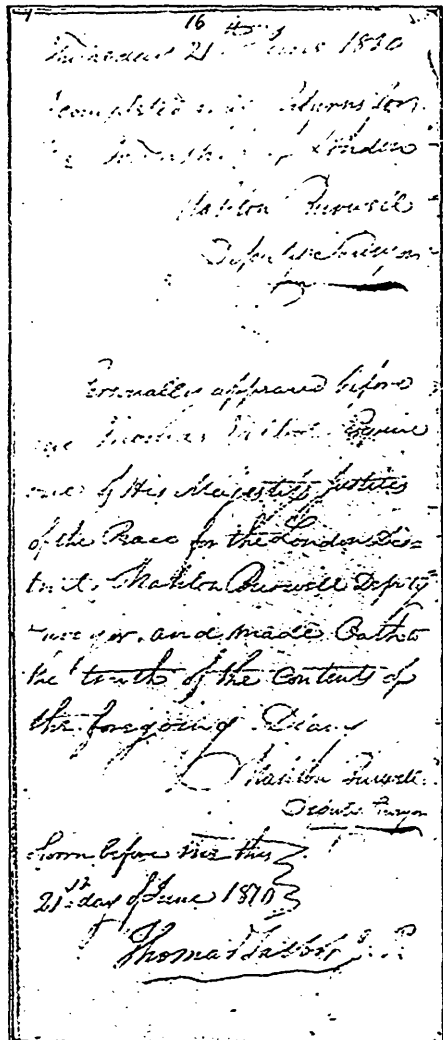 16
Thursday 21st June 1810
completed my returns for
the Township of London
Mahlon Burwell
Deputy Surveyor
Personally appeared before
me Thomas Talbot Esquire
one of His Majesty's Justices
of the Peace for the London Dis=
trict, Mahlon Burwell Deputy
Surveyor, and made Oath to
the truth of the contents of
the foregoing Diary
Mahlon Burwell
Deputy Surveyor
Sworn before me this
21st day of June 1810
Thomas Talbot J. P.